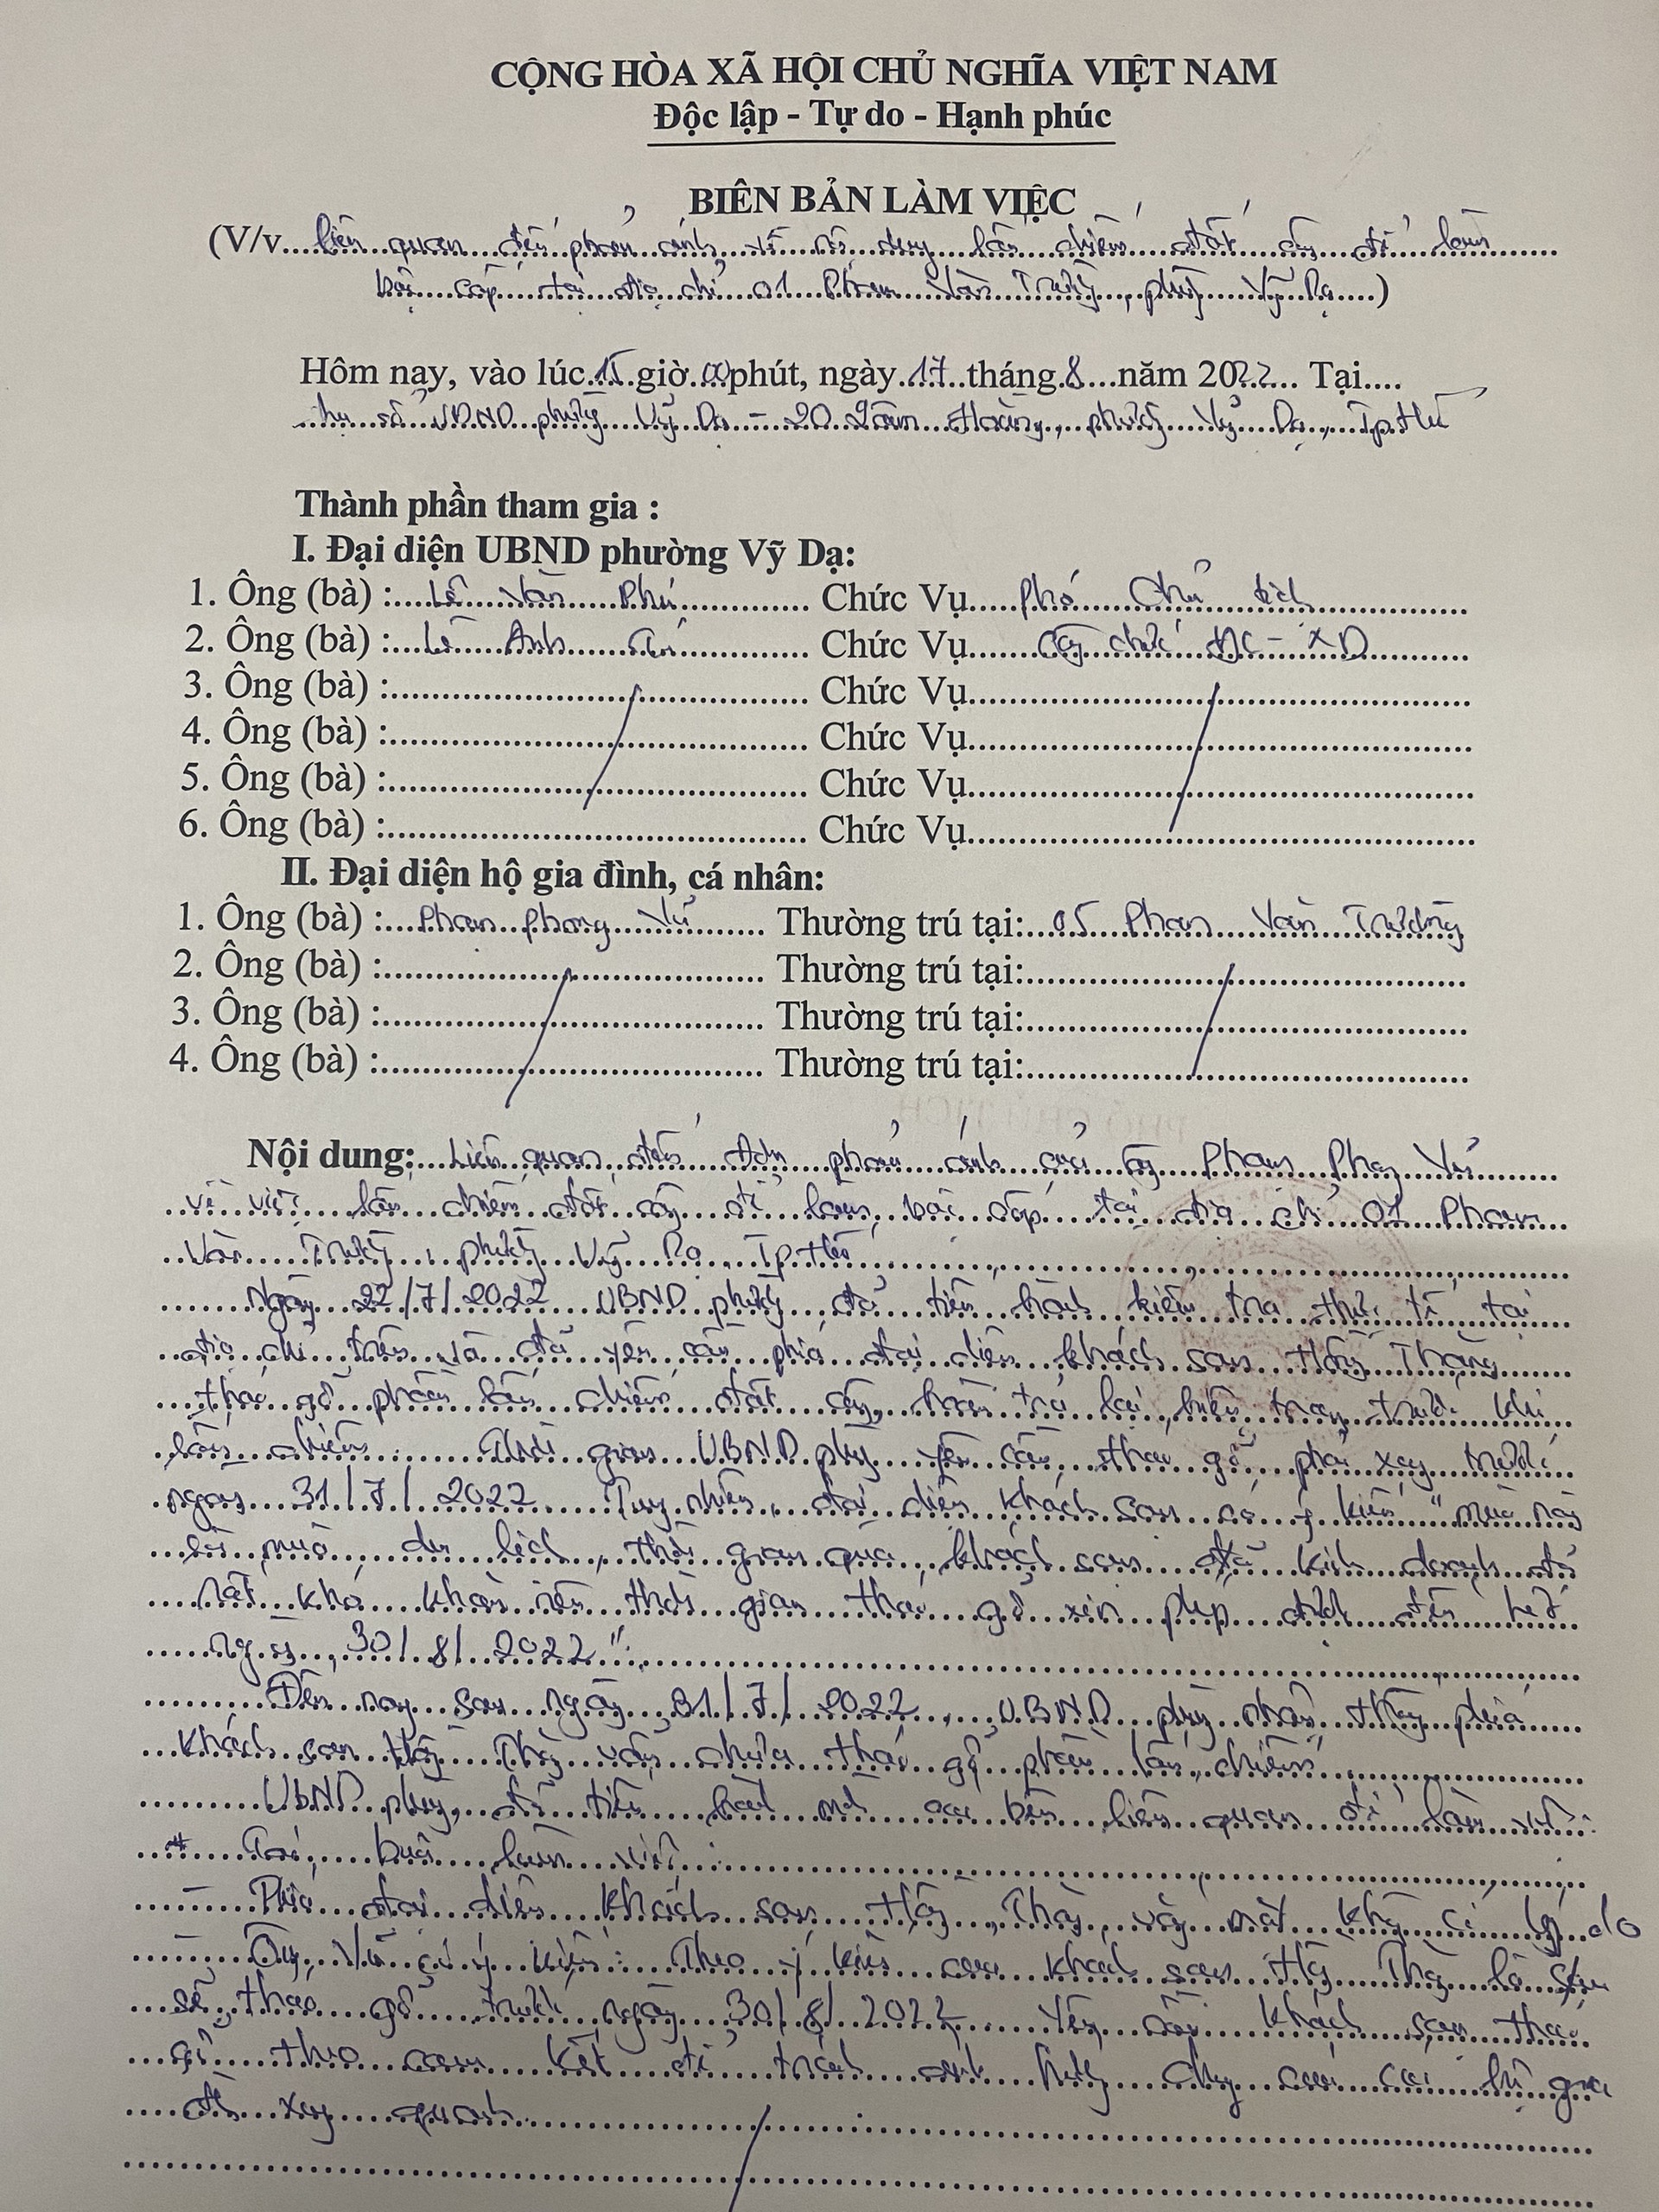 CỘNG HÒA XÃ HỘI CHỦ NGHĨA VIỆT NAM
Độc lập - Tự do - Hạnh phúc
BIÊN BẢN LÀM VIỆC
(V/v liên quan đến phản ánh về nội dung lấn chiếm đất công để làm
bậc cấp tại địa chỉ 01 Phan Văn Trường, phường Vỹ Dạ)
Hôm nay, vào lúc 15 giờ 00 phút, ngày 17 tháng 8 năm 2022. Tại
trụ sở UBND phường Vỹ Dạ - 20 Lâm Hoằng, phường Vỹ Dạ, Tp. Huế
Thành phần tham gia :
I. Đại diện UBND phường Vỹ Dạ:
1. Ông (bà) : Lê Văn Phú Chức Vụ Phó Chủ tịch
2. Ông (bà) : Lê Anh Chức Vụ Công chức ĐC - XD
3. Ông (bà) : Chức Vụ
4. Ông (bà) : Chức Vụ
5. Ông (bà) : Chức Vụ
6. Ông (bà) : Chức Vụ
II. Đại diện hộ gia đình, cá nhân:
1. Ông (bà) : Phan Phong Vũ Thường trú tại: 05 Phan Văn Trường
2. Ông (bà) : Thường trú tại:
3. Ông (bà) : Thường trú tại:
4. Ông (bà) : Thường trú tại:
Nội dung: Liên quan đến đơn phản ánh của ông Phan Phong Vũ
về việc lấn chiếm đất công để làm bậc cấp tại địa chỉ 01 Phan
Văn Trường, phường Vỹ Dạ, Tp. Huế
Ngày 22/7/2022 UBND phường đã tiến hành kiểm tra thực tế tại
địa chỉ trên và đã yêu cầu phía đại diện khách sạn Hồng
tháo gỡ phần lấn chiếm đất công, hoàn trả lại hiện trạng trước khi
lấn chiếm. Thời gian UBND phường yêu cầu tháo gỡ phải xong trước
ngày 31/7/2022. Tuy nhiên, đại diện khách sạn có ý kiến "mùa này
là mùa du lịch, thời gian qua khách sạn đã kinh doanh
rất khó khăn nên thời gian tháo gỡ xin phép được đến hết
ngày 30/8/2022".
Đến nay sau ngày 31/7/2022, UBND phường nhận thấy phía
khách sạn Hồng vẫn chưa tháo gỡ phần lấn chiếm
UBND phường đã tiến hành mời các bên liên quan để làm việc.
* Tại buổi làm việc:
- Phía đại diện khách sạn Hồng vắng mặt không có lý do
- Ông Vũ có ý kiến: Theo ý kiến của khách sạn Hồng là
sẽ tháo gỡ trước ngày 30/8/2022. Yêu cầu khách sạn tháo
gỡ theo cam kết để tránh ảnh hưởng chung của các hộ gia
đình xung quanh.